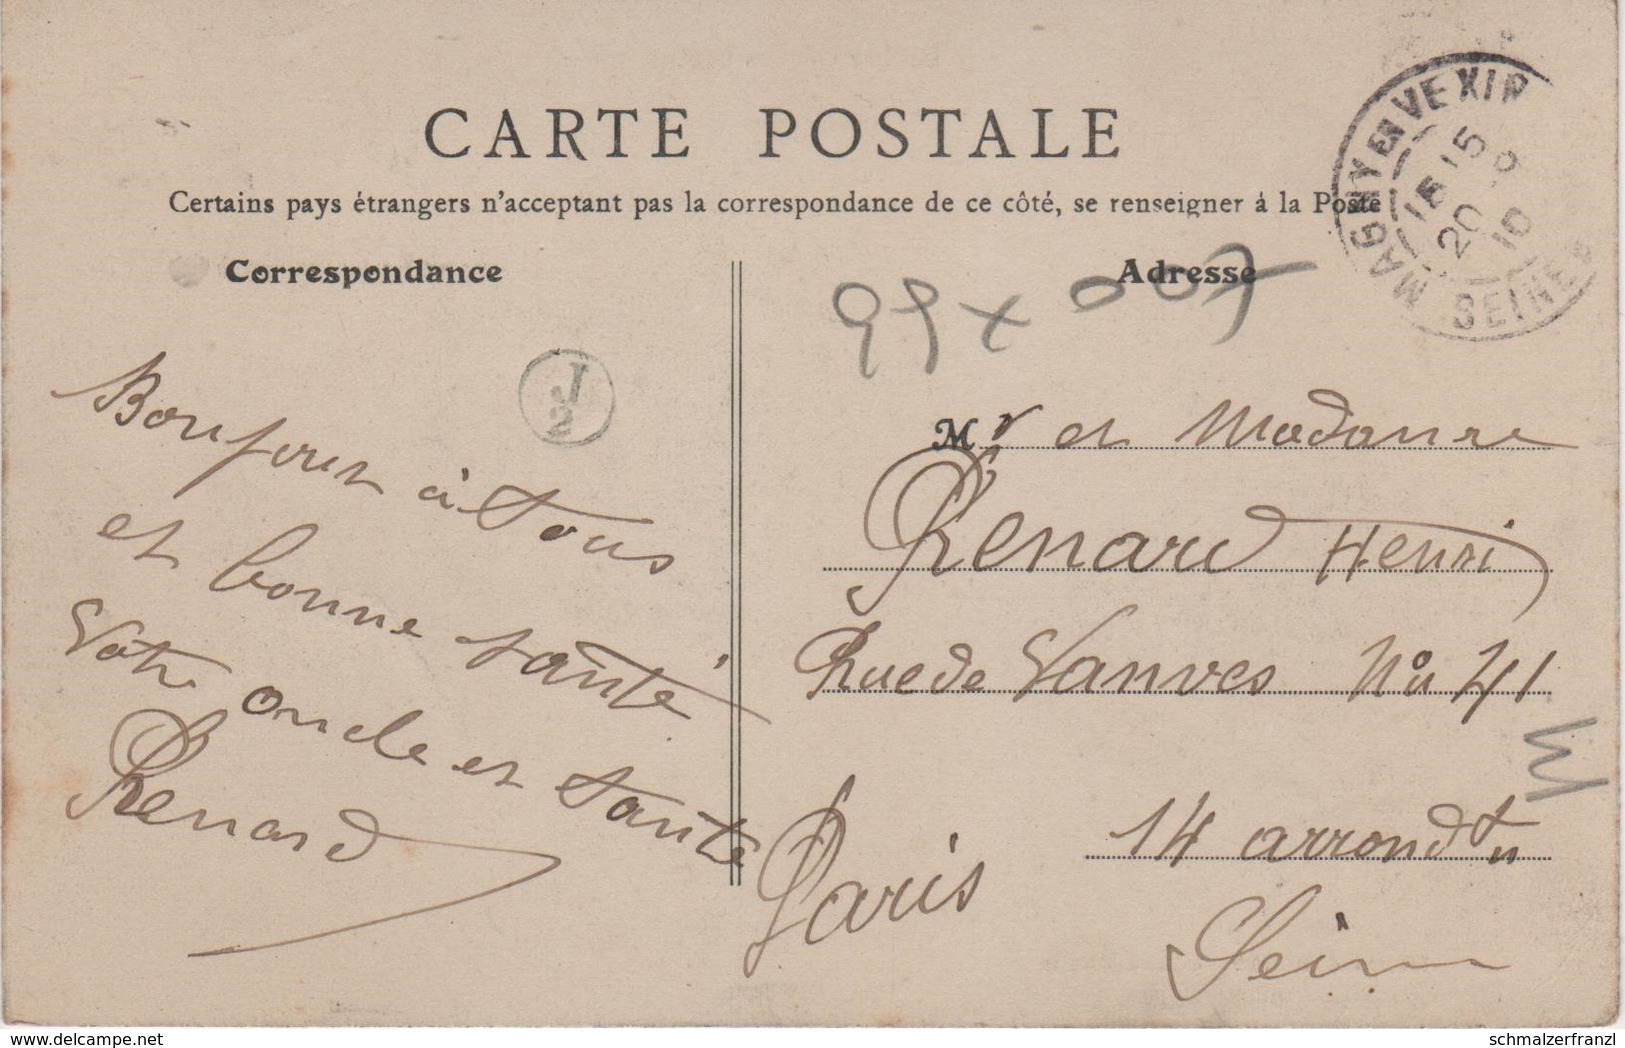 CARTE POSTALE
Certains pays étrangers n'acceptant pas la correspondance de ce côté, se renseigner à la Poste
MAGNY EN VEXIN
15
15
20
10
SEINE
Correspondance
J
2
Bonjour à tous
et bonne santé
Votre oncle et tante
Renard
Adresse
99 x 007
Mr et Madame
Renard Henri
Rue de Vanves No 41
14 arrondtn
Paris
Seine
www.delcampe.net
schmalzerfranzl